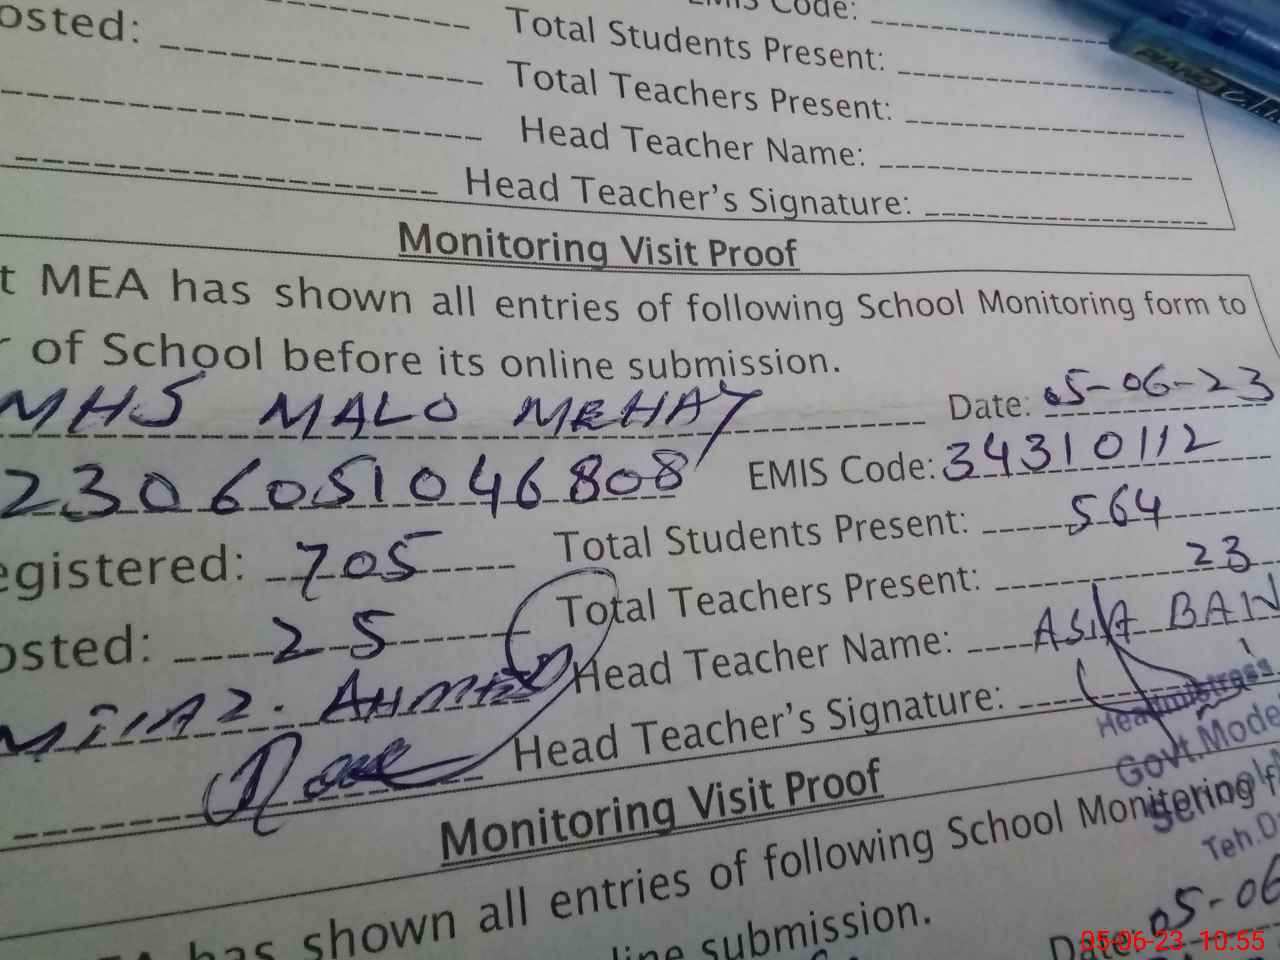 EMIS Code:
osted: Total Students Present:
Total Teachers Present:
Head Teacher Name:
Head Teacher's Signature:
Monitoring Visit Proof
t MEA has shown all entries of following School Monitoring form to
r of School before its online submission.
MHS MALO MEHAY Date: 05-06-23
2306051046808 EMIS Code: 34310112
egistered: 705 Total Students Present: 564
osted: 25 Total Teachers Present: 23
AHMED Head Teacher Name: ASIA BAN
Head Teacher's Signature:
Headmistress
Govt. Mode
Teh.D
Monitoring Visit Proof
EA has shown all entries of following School Monitoring f
line submission.
Date: 05-06
05-06-23 10:55